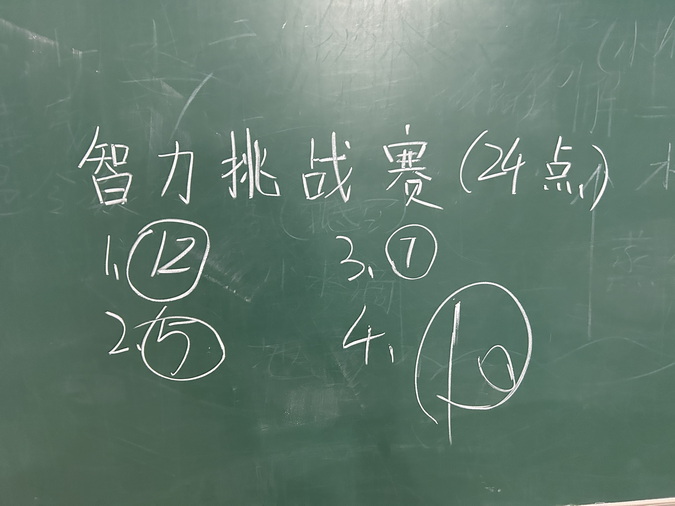 智力挑战赛(24点)
1、12 3、7
2、5 4、10